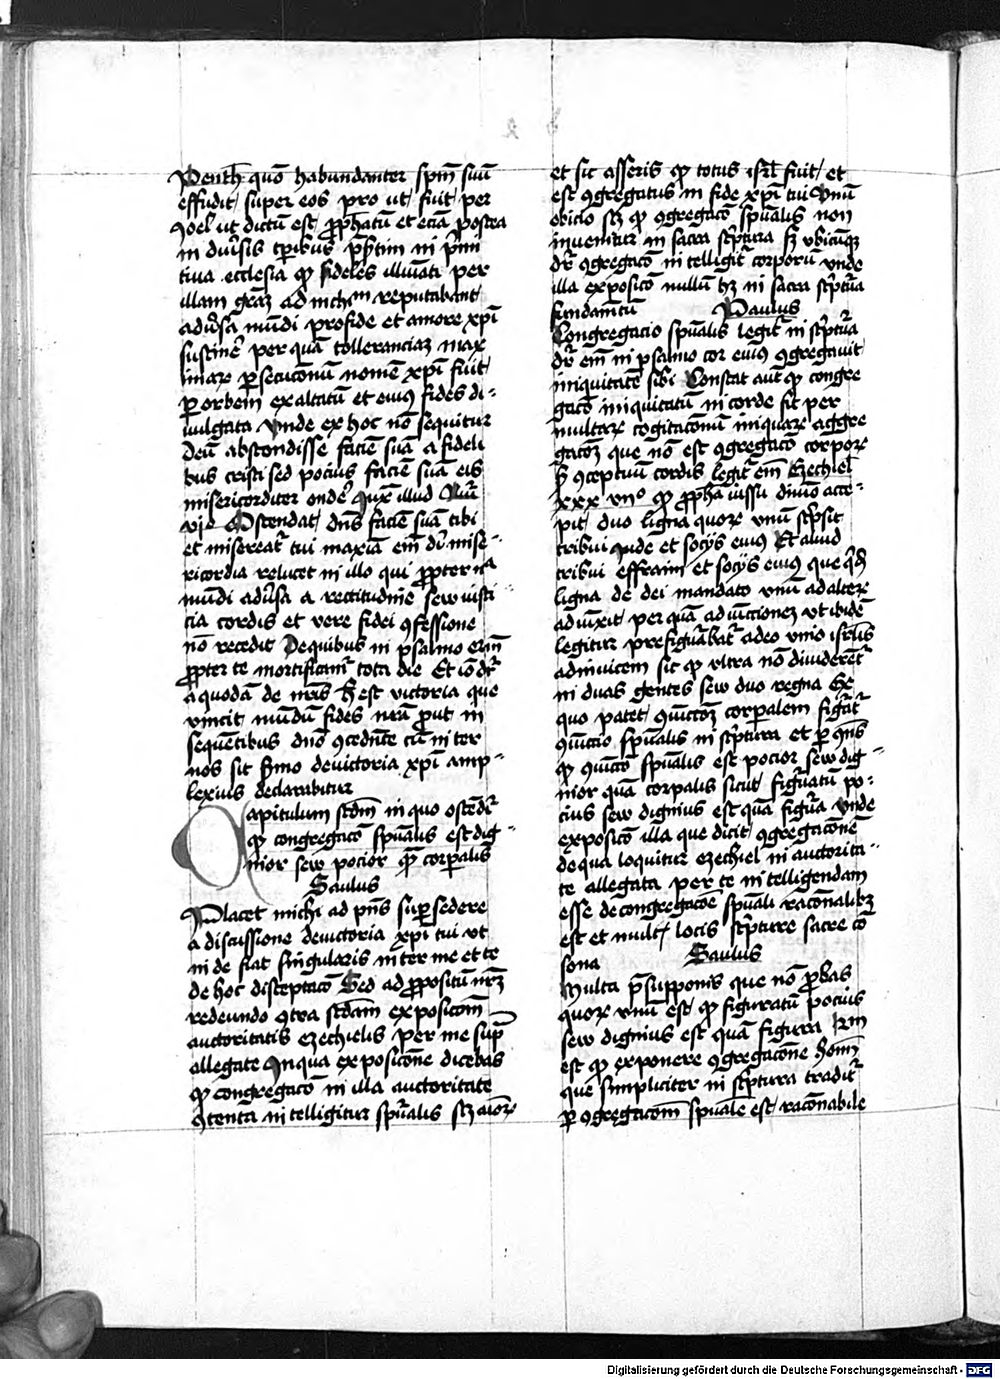 Penth̄ quō habundanter spm̄ suū
effudit super eos pro ut fuit per
Johel ut dictū est ꝓphatū et eciā postea
in diu̓sis tp̄ibus p̄sertim in p̄mi
tiua ecclesia ꝙ fideles illuīati per
illam grāꝫ ad nichm̄ reputabant
adu̓sa mūdi pro fide et amore xp̄i
sustine̓ per quā tolleranciaꝫ max
imaꝝ ꝑsecucionū nomē xp̄i fuit
ꝑ orbem exaltatū et eiuꝰ fides di-
uulgata Vnde ex hoc nō sequitur
deū abscondisse faciē suā a fideli
bus cristi sed pocius faciē suā eis
misericorditer ondē Juxᵃ illud Nūi
vjᵒ Ostendat dn̄s faciē suā tibi
et misereat᷑ tui maxīa em̄ di mise-
ricordia relucet in illo qui ꝓpter
mūdi adu̓sa a rectitudine sew iusti
cia cordis et vere fidei ꝯfessione
nō recedit De quibus in psalmo
ꝓpter te mortificam᷑ tota die Et iō dr̄
a quodā de nr̄is Hec est victoria que
vincit mūdū fides nrā ꝓut in
sequētibus dn̄o ꝯcedn̄te cū inter
nos sit sermo de victoria xp̄i amp-
lexius declarabitur
Capitulum scdm̄ in quo ostēdit᷑
ꝙ congregacō spūalis est dig-
nior sew pocior qm̄ corpalis
Saulus
Placet michi ad pn̄s suꝑsedere
a discussione de victoria xp̄i tui ut
inde fiat singularis inter me et te
de hoc disceptacō Sed ad ꝓpositū nr̄ꝫ
redeundo ꝯtra scdām exposicōm
auctoritatis ezechielis per me sup̄
allegate In qua exposicōne dicebas
ꝙ congregacō in illa auctoritate
ꝯtenta intelligitur spūalis scꝫ aīoꝝ
et sic asseris ꝙ totus isrl̄ fuit et
est ꝯgregatus in fide xp̄i tui Vnū
obicio scꝫ ꝙ ꝯgregacō spūalis non
inuenitur in sacra sc̓ptura sꝫ vbicūqꝫ
dr̄ ꝯgregacō intelligit᷑ corporū vnde
illa exposicō nullū hꝫ in sacra sc̓ptūa
fundam̄tū Paulus
Congregacio spūalis legit᷑ in sc̓ptūa
dr̄ em̄ in psalmo cor eiuꝰ ꝯgregauit
iniquitatē sibi Constat aut̄ ꝙ congre
gacō iniquitatū in corde fit per
multaꝝ cogitacōnū iniquaꝝ aggre
gacōꝫ que nō est ꝯgregacō corpoꝝ
sꝫ ꝯceptuū cordis legit᷑ em̄ Ezechiel
xxx vnᵒ ꝙ ꝓpha iussu diuīo acce-
pit duo ligna quoꝝ vnū sc̓psit
tribui Jude et socijs eiuꝰ Et aliud
tribui effraim et socijs eiuꝰ que qd̄
ligna de dei mandato vnū ad alteꝝ
adiūxit per quā adiūctionem vt ibidē
legitur prefigurabat᷑ adeo vnio isrl̄is
adinuicem sic ꝙ vltra nō diuiderēt᷑
in duas gentes sew duo regna Ex
quo patet ꝯiūctōꝫ corꝑalem figūat᷑
ꝯiūctio spūalis in sc̓ptura et ꝑ ꝯn̄s
ꝙ ꝯiūctō spūalis est pocior sew dig-
nior quā corpalis sicut figūatū po-
cius sew dignius est quā figūa Vnde
exposicō illa que dicit ꝯgregacōnē
de qua loquitur ezechiel in auctorita-
te allegata per te intelligendam
esse de congregacōe spūali racōnalibꝫ
est et mult᷑ locis sc̓pture sacre cō
sona Saulus
Multa p̄supponis que nō ꝓbas
quoꝝ vnū est ꝙ figuratū pocius
sew dignius est quā figura Itm̄
est ꝙ exponere ꝯgregacōne hoīm
que simpliciter in sc̓ptura tradit᷑
ꝑ ꝯgregacōm spūale est racōnabile
Digitalisierung gefördert durch die Deutsche Forschungsgemeinschaft - DFG